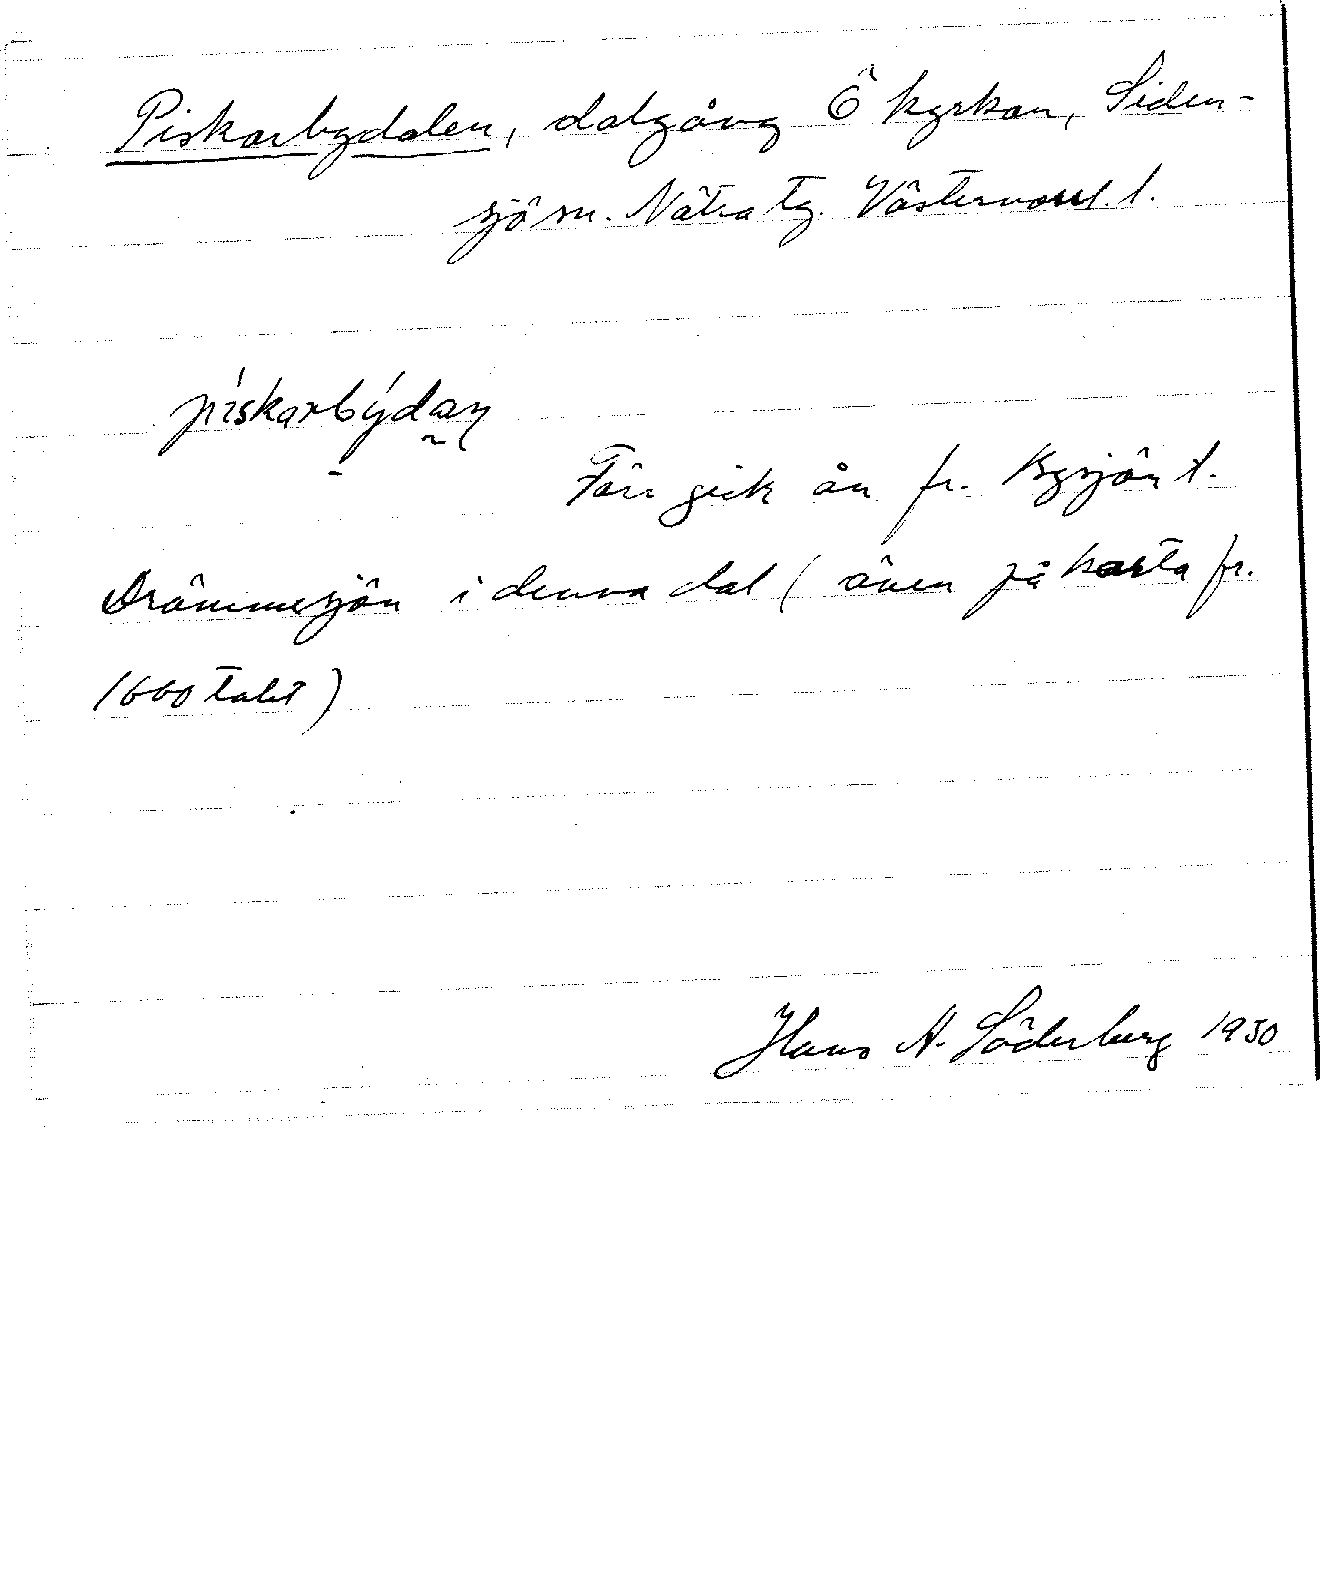 Piskarbydalen, dalgång Ö kyrkan, Siden-
sjö sn. Nätra tg. Västernorrl. l.
Förr gick ån fr. Bysjön t.
Drömmesjön i denna dal (även på karta fr.
1600 talet)
Hans A. Söderberg 1930